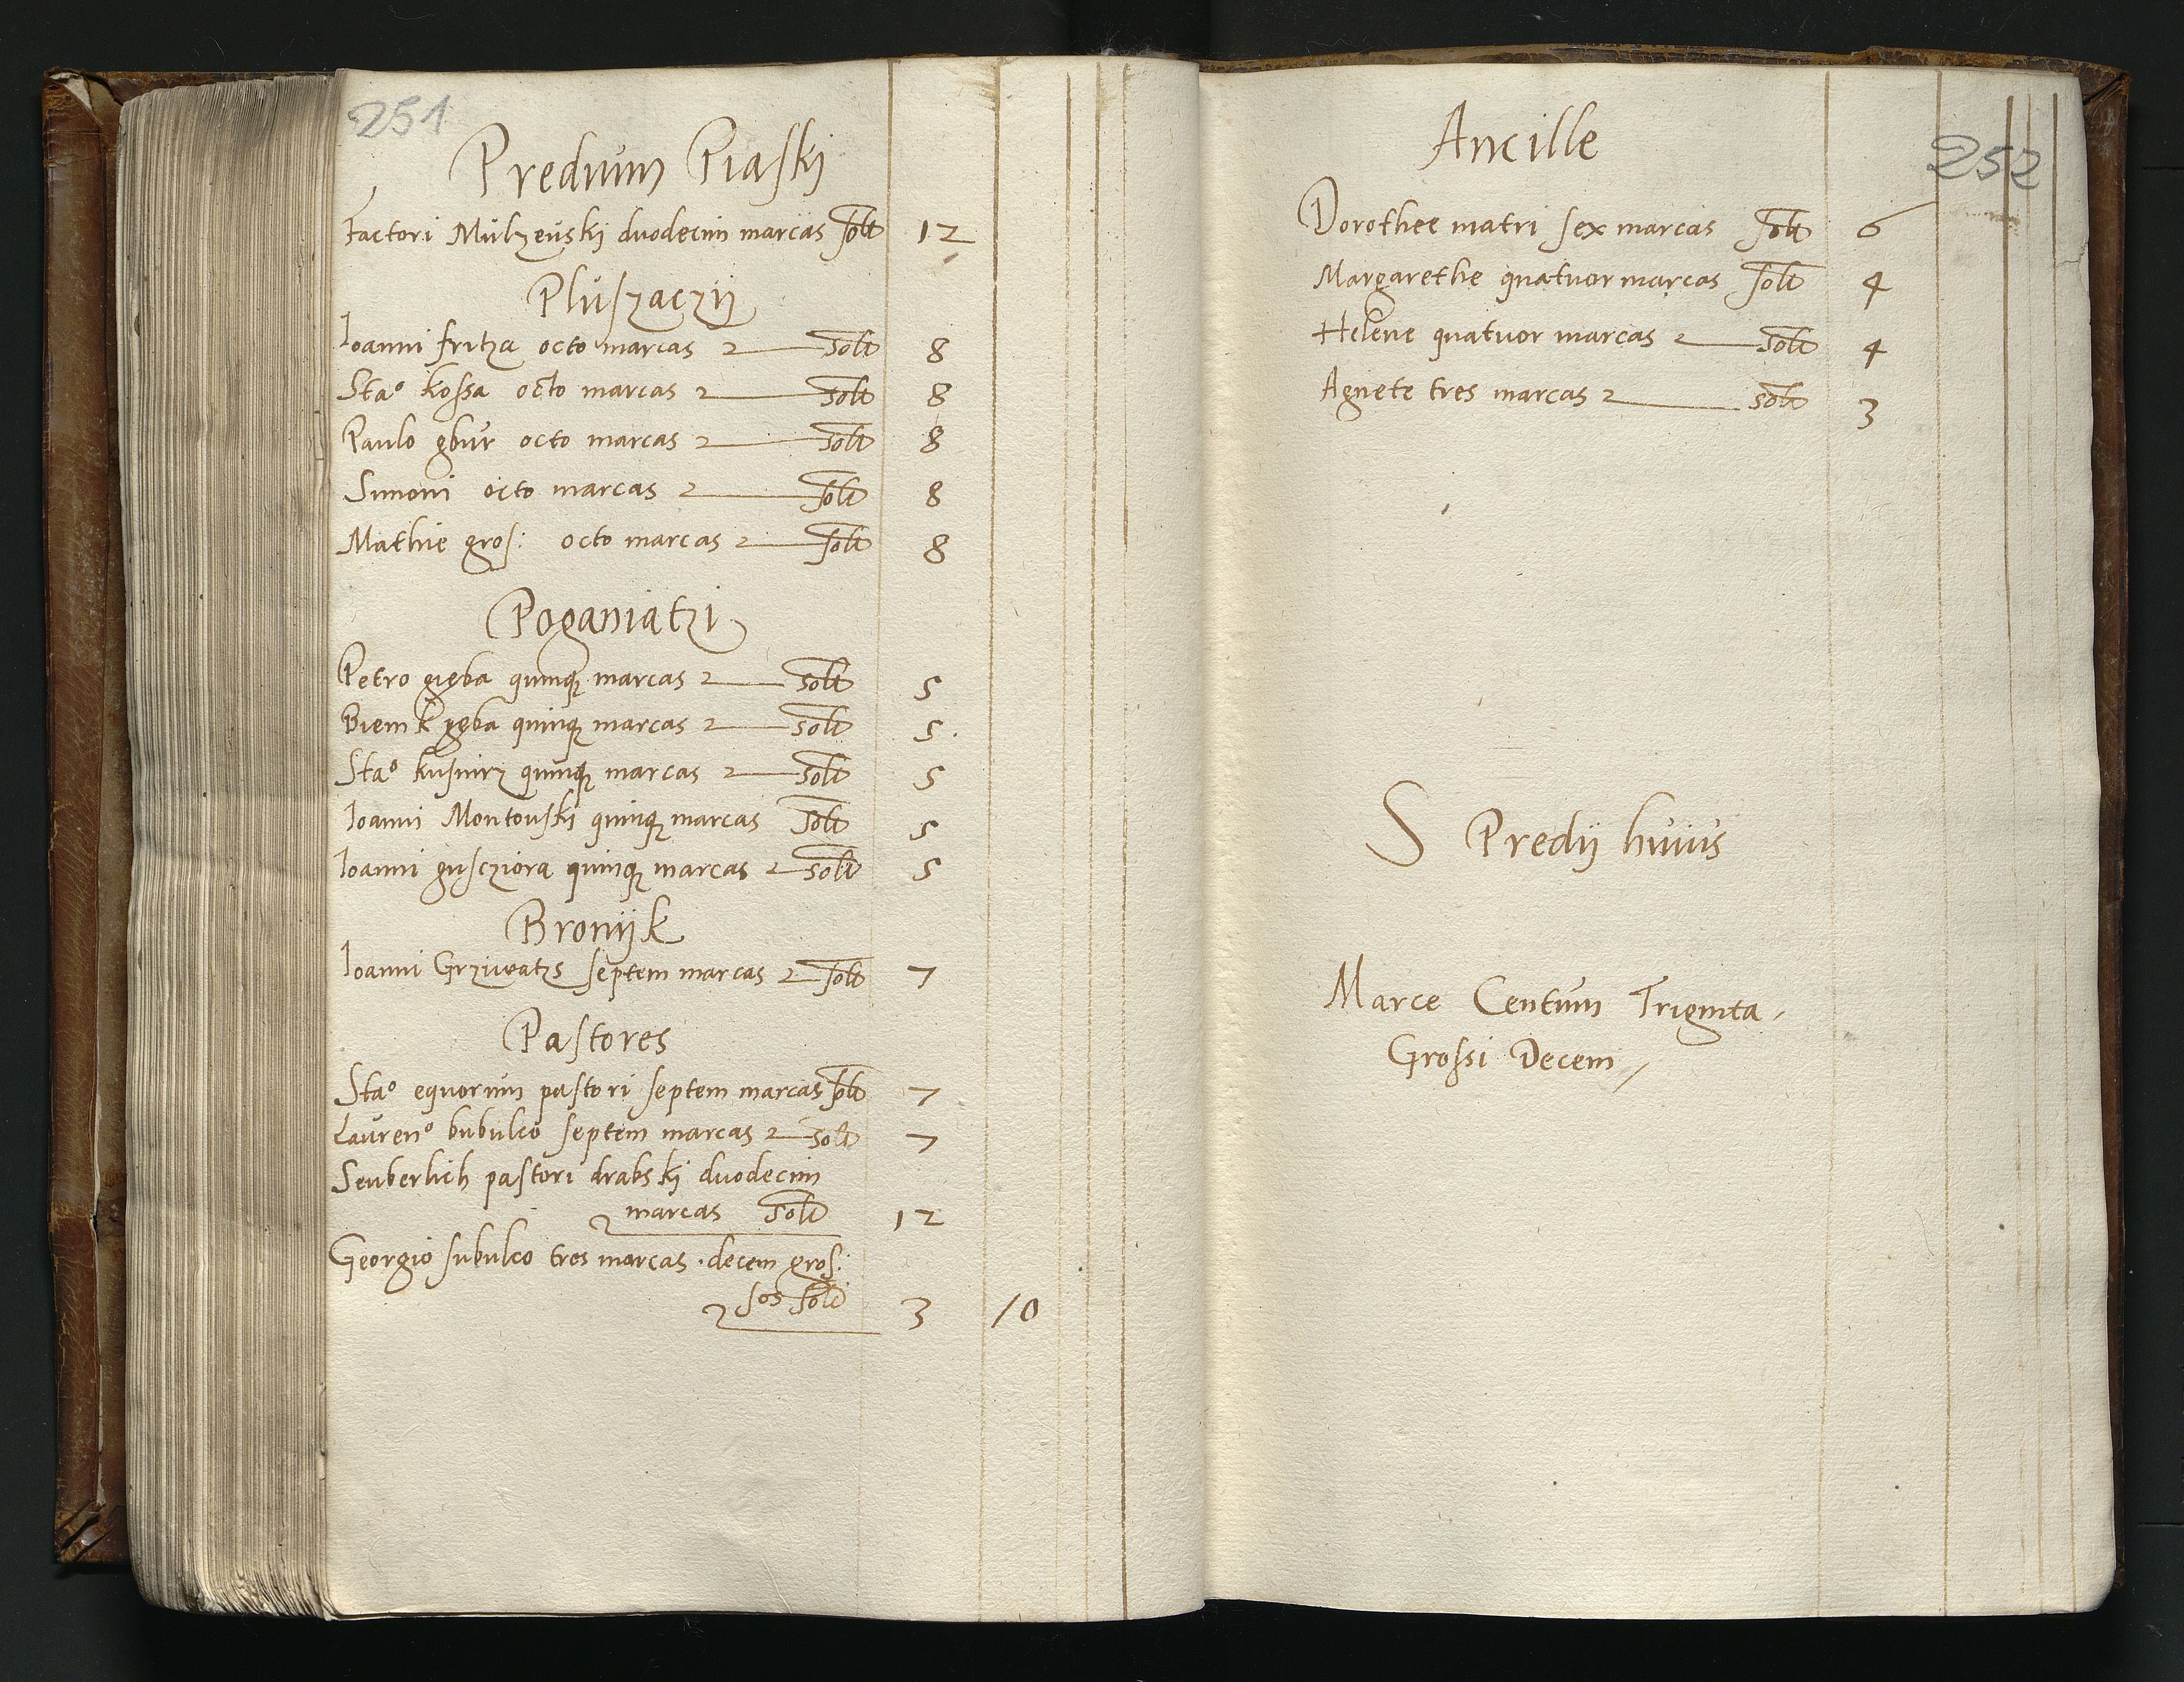 251
Predium Piaskj
Factori Mulzeuskj duodecim marcas solt 12
Pluszaczÿ
Ioanni fritza octo marcas solt 8
Staᵒ kossa octo marcas solt 8
Paulo gbur octo marcas solt 8
Simoni octo marcas solt 8
Mathie gros: octo marcas solt 8
Poganiatzi
Petro gięba quinqꝫ marcas solt 5
Biemk gęba quinqꝫ marcas solt 5
Staᵒ kusnirz quinqꝫ marcas solt 5
Ioanni Montouski quinqꝫ marcas solt 5
Ioanni guscziora quinqꝫ marcas solt 5
Bronÿk
Ioanni Grziwatzs septem marcas solt 7
Pastores
Staᵒ equorum pastori septem marcas solt 7
Laurenᵒ bubulco septem marcas solt 7
Seuberlich pastori drabskj duodecim
marcas solt 12
Georgio subulco tres marcas decem gros:
sos solt 3 10
252
Ancille
Dorothee matri sex marcas solt 6
Margarethe quatuor marcas solt 4
Helene quatuor marcas solt 4
Agnete tres marcas solt 3
S Predÿ huius
Marce Centum Triginta
Grossi Decem